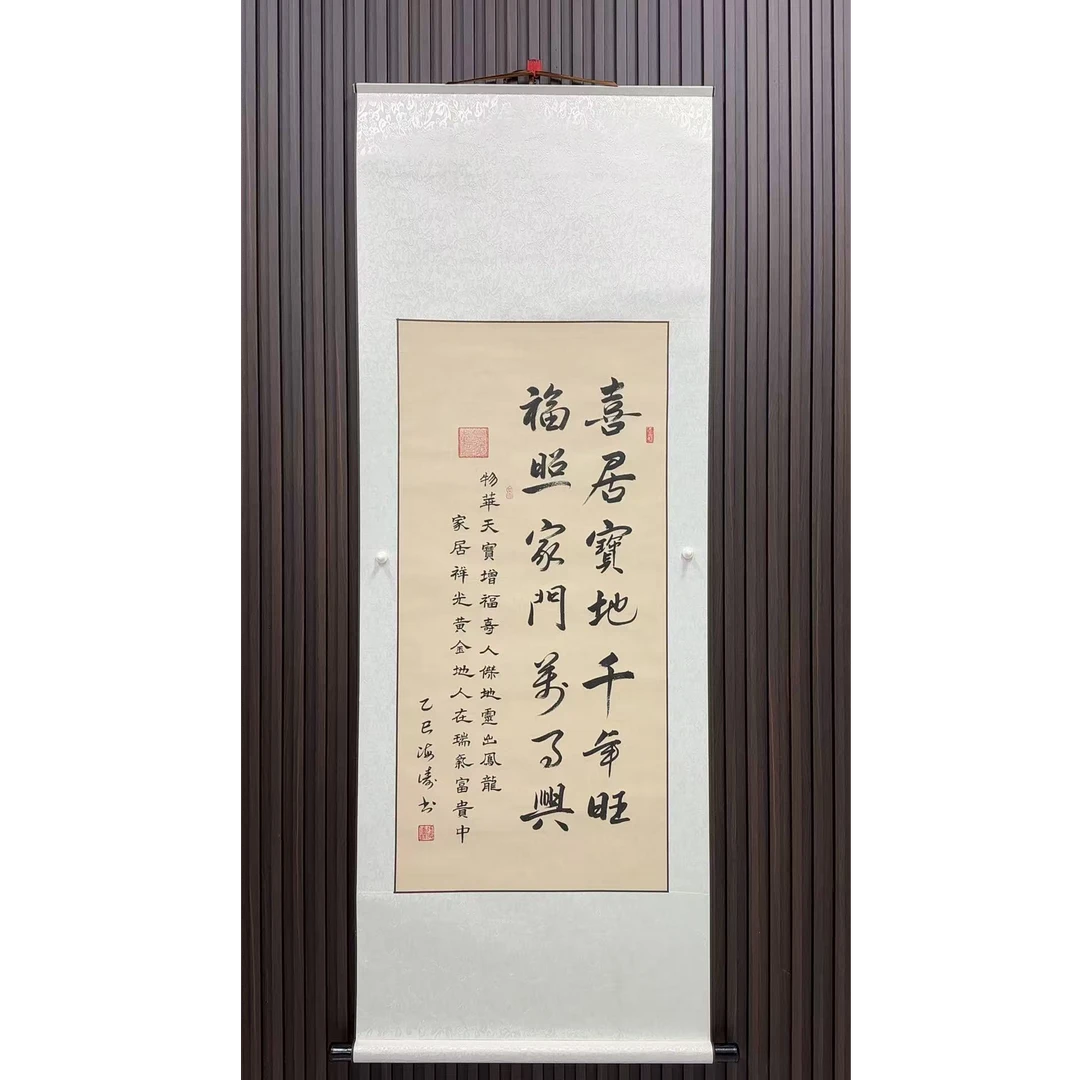 喜居寶地千年旺
福照家門萬事興
物華天寶增福壽人傑地靈出鳳龍
家居祥光黃金地人在瑞氣富貴中
乙巳海濤书